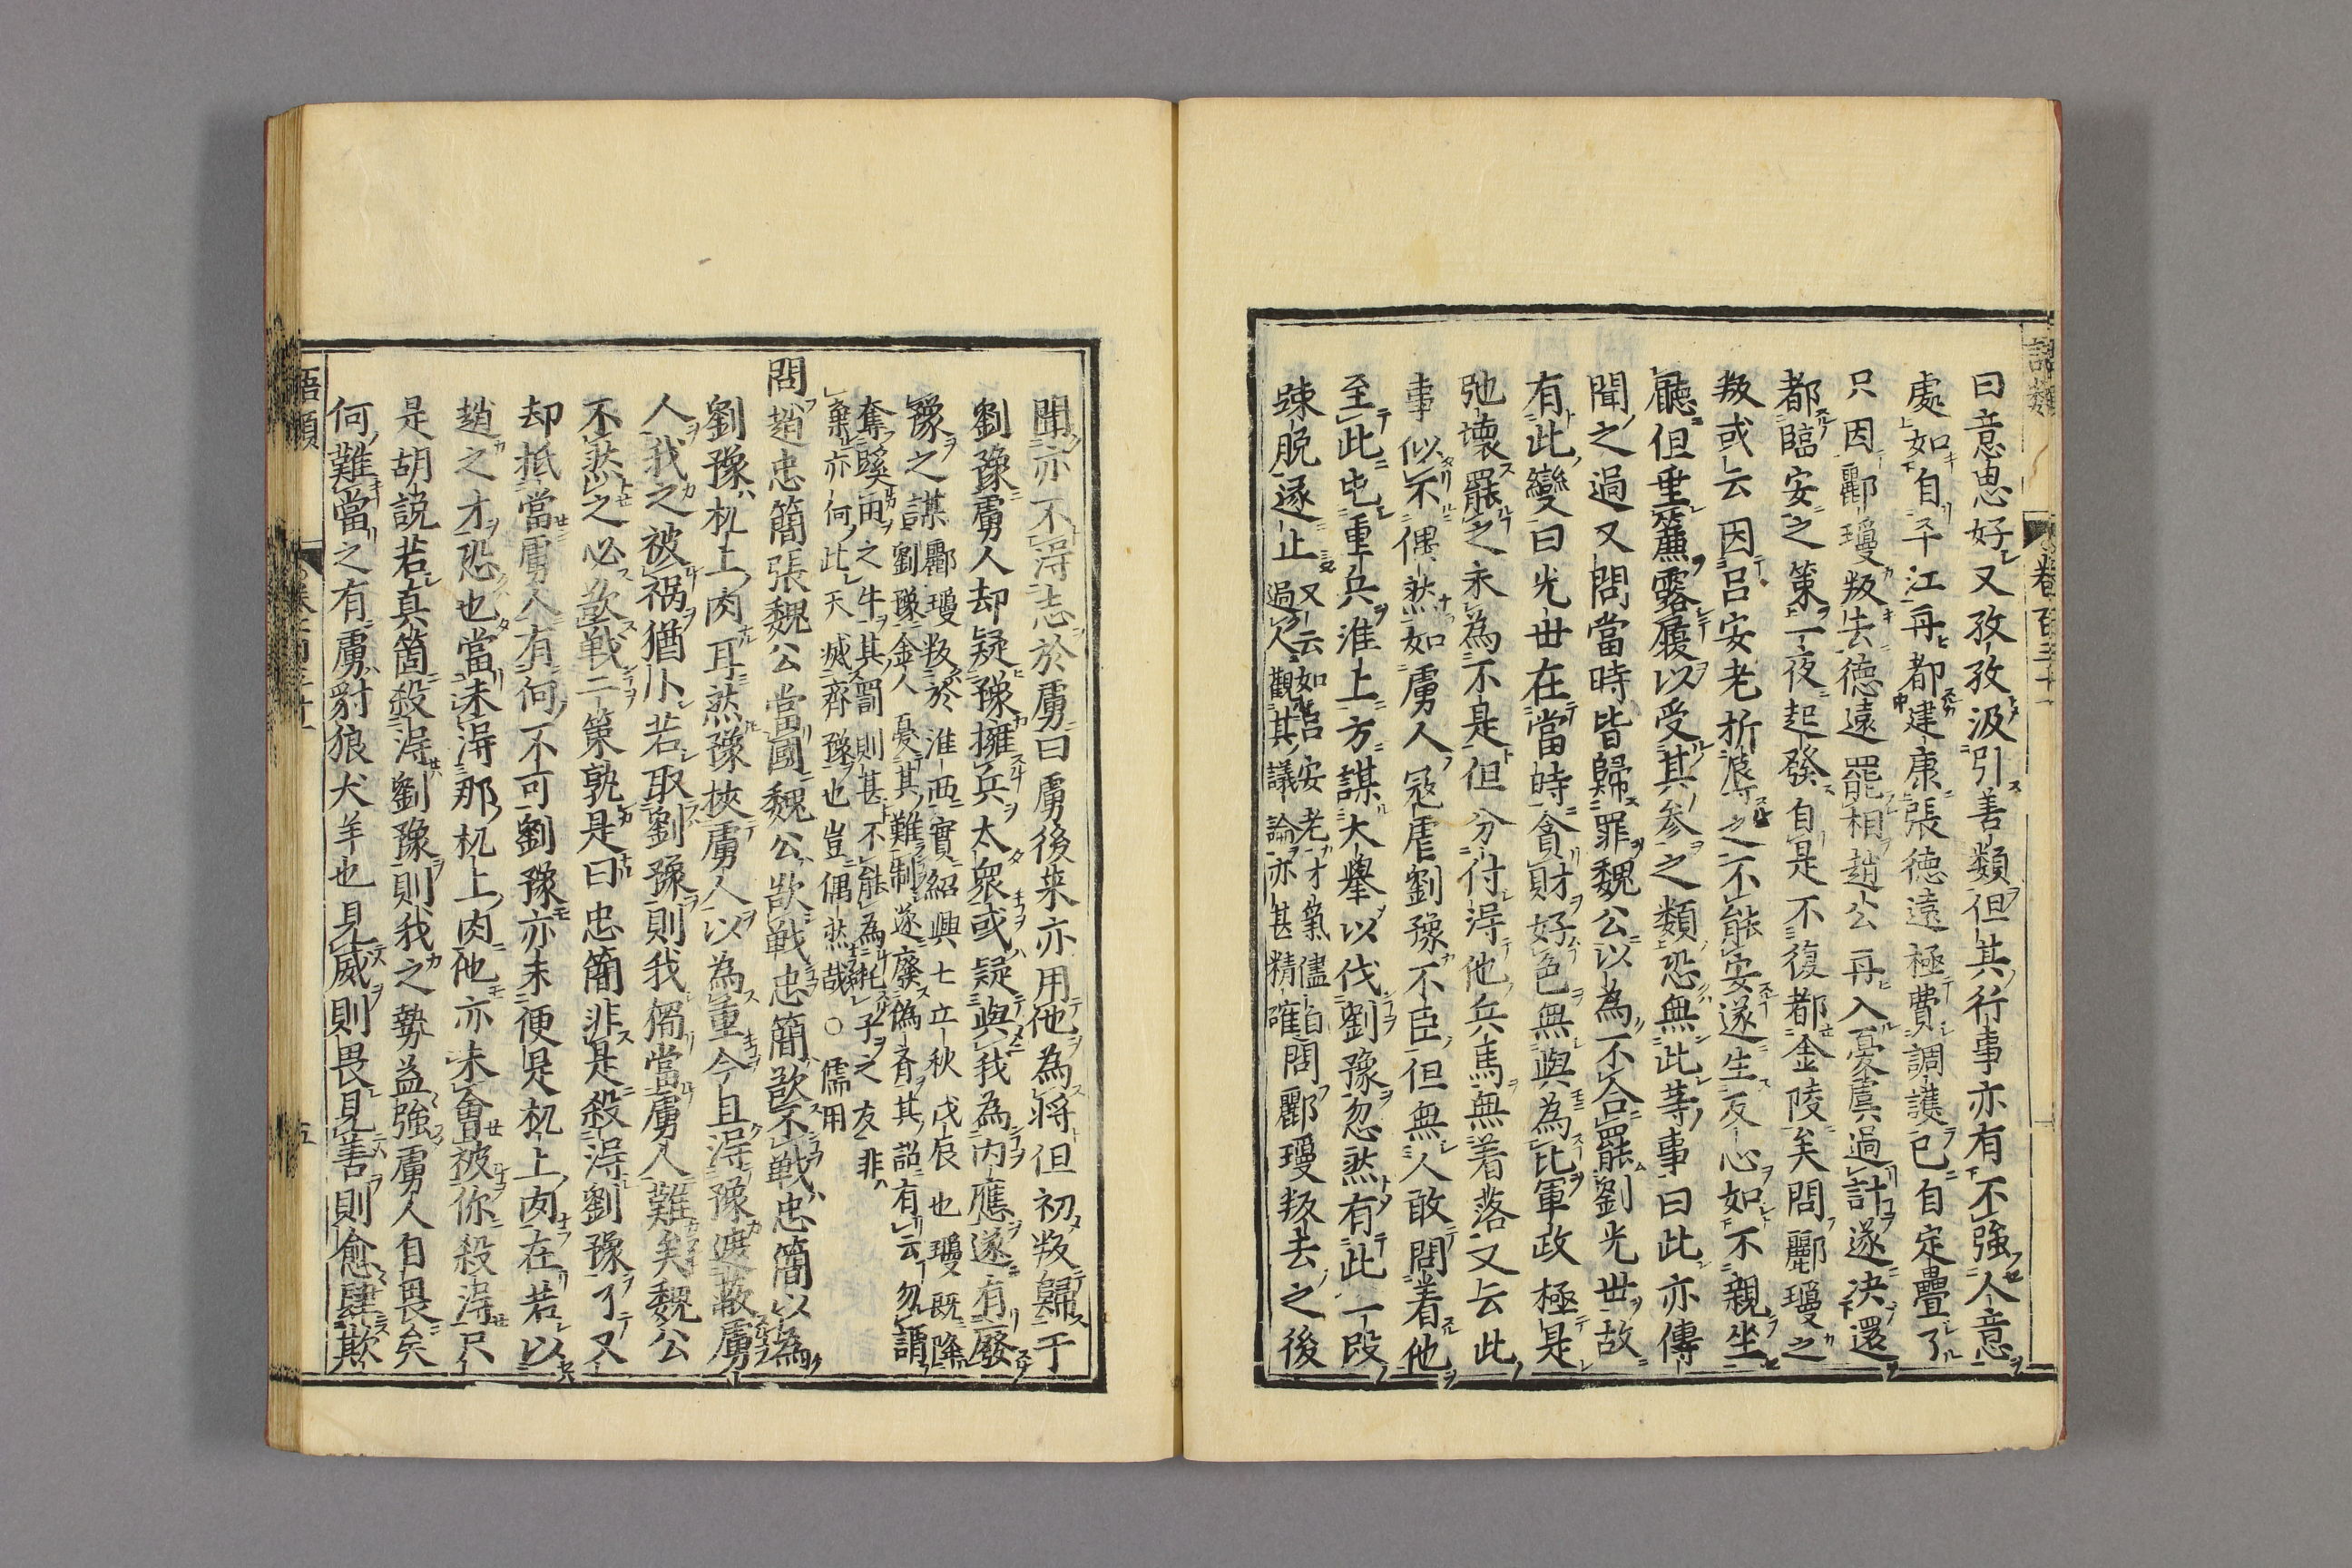 語類
卷百三十一
曰意思好又孜孜汲引善類但其行事亦有不強人意
處如自平江再都建康張德遠極費調護已自定疊了
只因酈瓊叛去德遠罷相趙公再入憂虞過計遂決還
都臨安之策一夜起發自是不復都金陵矣問酈瓊之
叛或云因呂安老折辱之不能安遂生反心如不親坐
廳但垂簾露履以受其参之類恐無此等事曰此亦傳
聞之過又問當時皆歸罪魏公以為不合罷劉光世故
有此變曰光世在當時貪財好色無與為比軍政極是
弛壞罷之未為不是但分付得他兵馬無着落又云此
事似不偶然如虜人寇虐劉豫不臣但無人敢問着他
至此屯重兵淮上方謀大舉以伐劉豫忽然有此一段
踈脫遂止
又云如呂安老才氣儘自
過人觀其議論亦甚精確
問酈瓊叛去之後
聞亦不得志於虜曰虜後來亦用他為將但初叛歸于
劉豫虜人却疑豫擁兵太衆或疑與我為内應遂有廢
豫之謀
酈瓊叛於淮西實紹興七立秋戊辰也瓊既降
劉豫金人憂其難制遂廢偽斉其詔有云勿謂
奪蹊田之牛其罰則甚不能為托子之友非
棄亦何此天滅齊豫也豈偶然哉○儒用
問趙忠簡張魏公當國魏公欲戰忠簡欲不戰忠簡以為
劉豫杌上肉耳然豫挾虜人以為重今且得豫遮蔽虜
人我之被禍猶小若取劉豫則我獨當虜人難矣魏公
不然之必欲戰二策孰是曰忠簡非是殺得劉豫了又
却抵當虜人有何不可劉豫亦未便是杌上肉在若以
趙之才恐也當未得那杌上肉他亦未會被你殺得只
是胡説若真箇殺得劉豫則我之勢益強虜人自畏矣
何難當之有虜豺狼犬羊也見威則畏見善則愈肆欺
語類
五